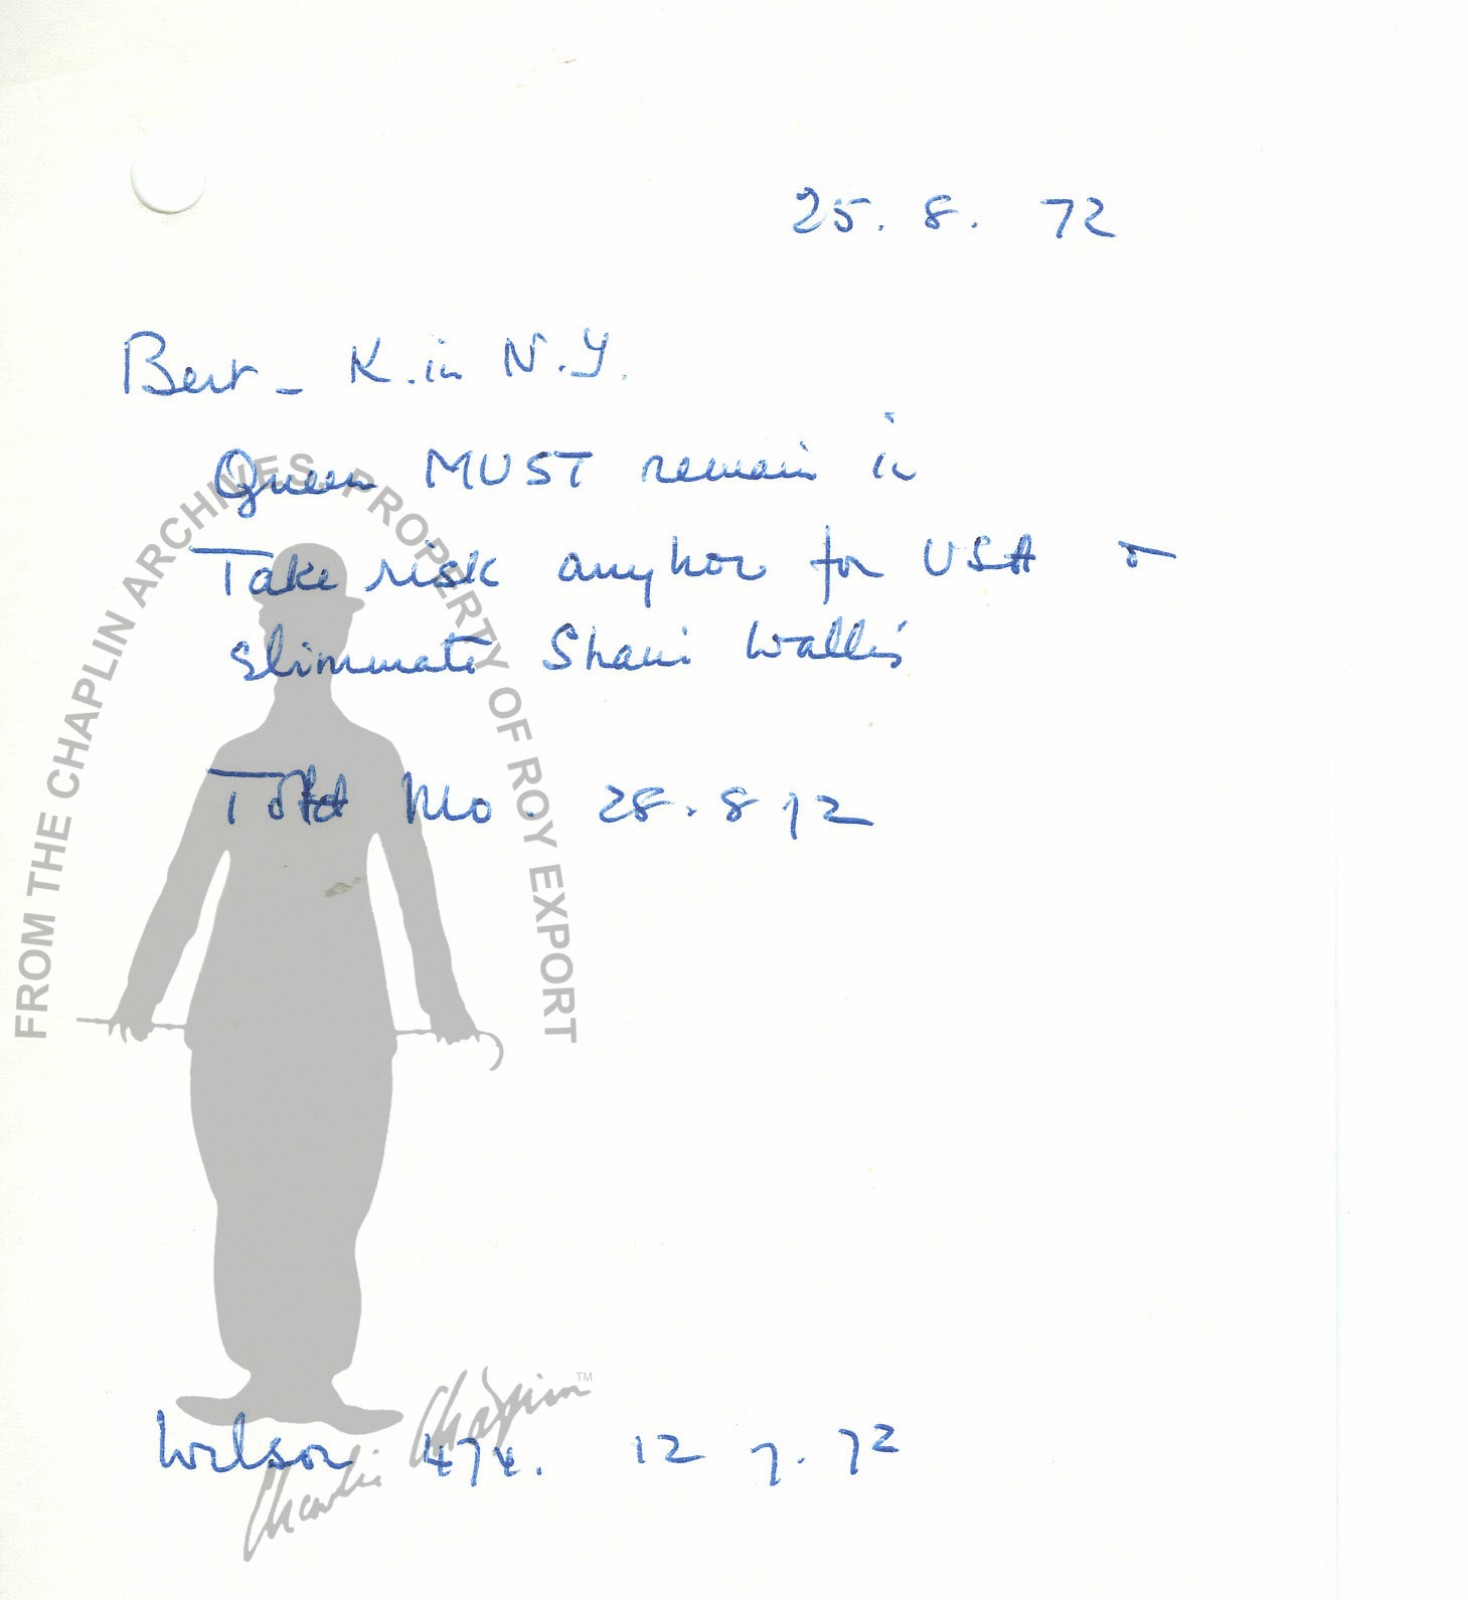 25. 8. 72
Bert - K. in N.Y.
Queen MUST remain in
Take risk anyhow for USA or
eliminate Shani Wallis
Told Mo. 28. 8 72
FROM THE CHAPLIN ARCHIVES, PROPERTY OF ROY EXPORT
Charlie Chaplin™
Wilson 474. 12 7. 72